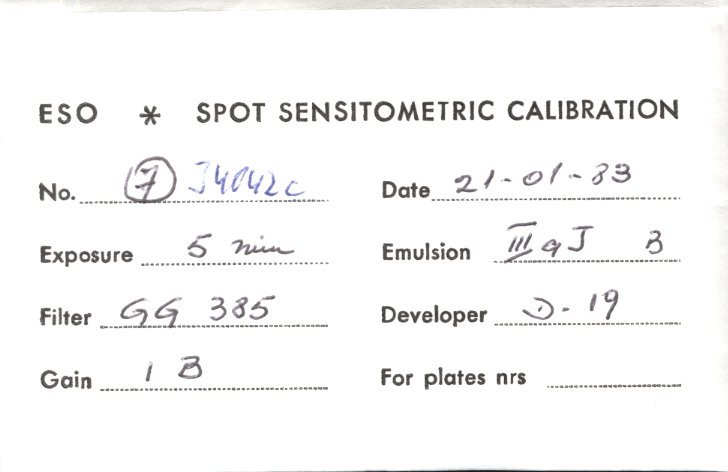 ESO * SPOT SENSITOMETRIC CALIBRATION
No. 7 J4042c Date 21-01-83
Exposure 5 min Emulsion IIIaJ B
Filter GG 385 Developer D-19
Gain 1 B For plates nrs